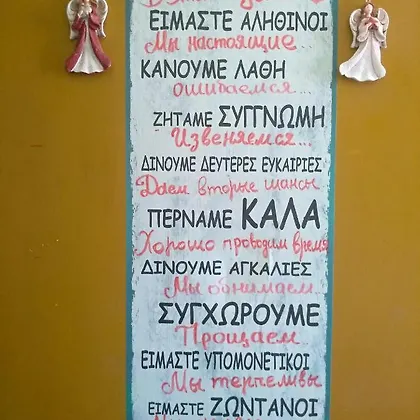 ΕΙΜΑΣΤΕ ΑΛΗΘΙΝΟΙ
Мы настоящие...
ΚΑΝΟΥΜΕ ΛΑΘΗ
ошибаемся...
ΖΗΤΑΜΕ ΣΥΓΓΝΩΜΗ
Извеняемся...
ΔΙΝΟΥΜΕ ΔΕΥΤΕΡΕΣ ΕΥΚΑΙΡΙΕΣ
Даем вторые шансы
ΠΕΡΝΑΜΕ ΚΑΛΑ
Хорошо проводим время
ΔΙΝΟΥΜΕ ΑΓΚΑΛΙΕΣ
Мы обнимаем...
ΣΥΓΧΩΡΟΥΜΕ
Прощаем...
ΕΙΜΑΣΤΕ ΥΠΟΜΟΝΕΤΙΚΟΙ
Мы терпеливы
ΕΙΜΑΣΤΕ ΖΩΝΤΑΝΟΙ